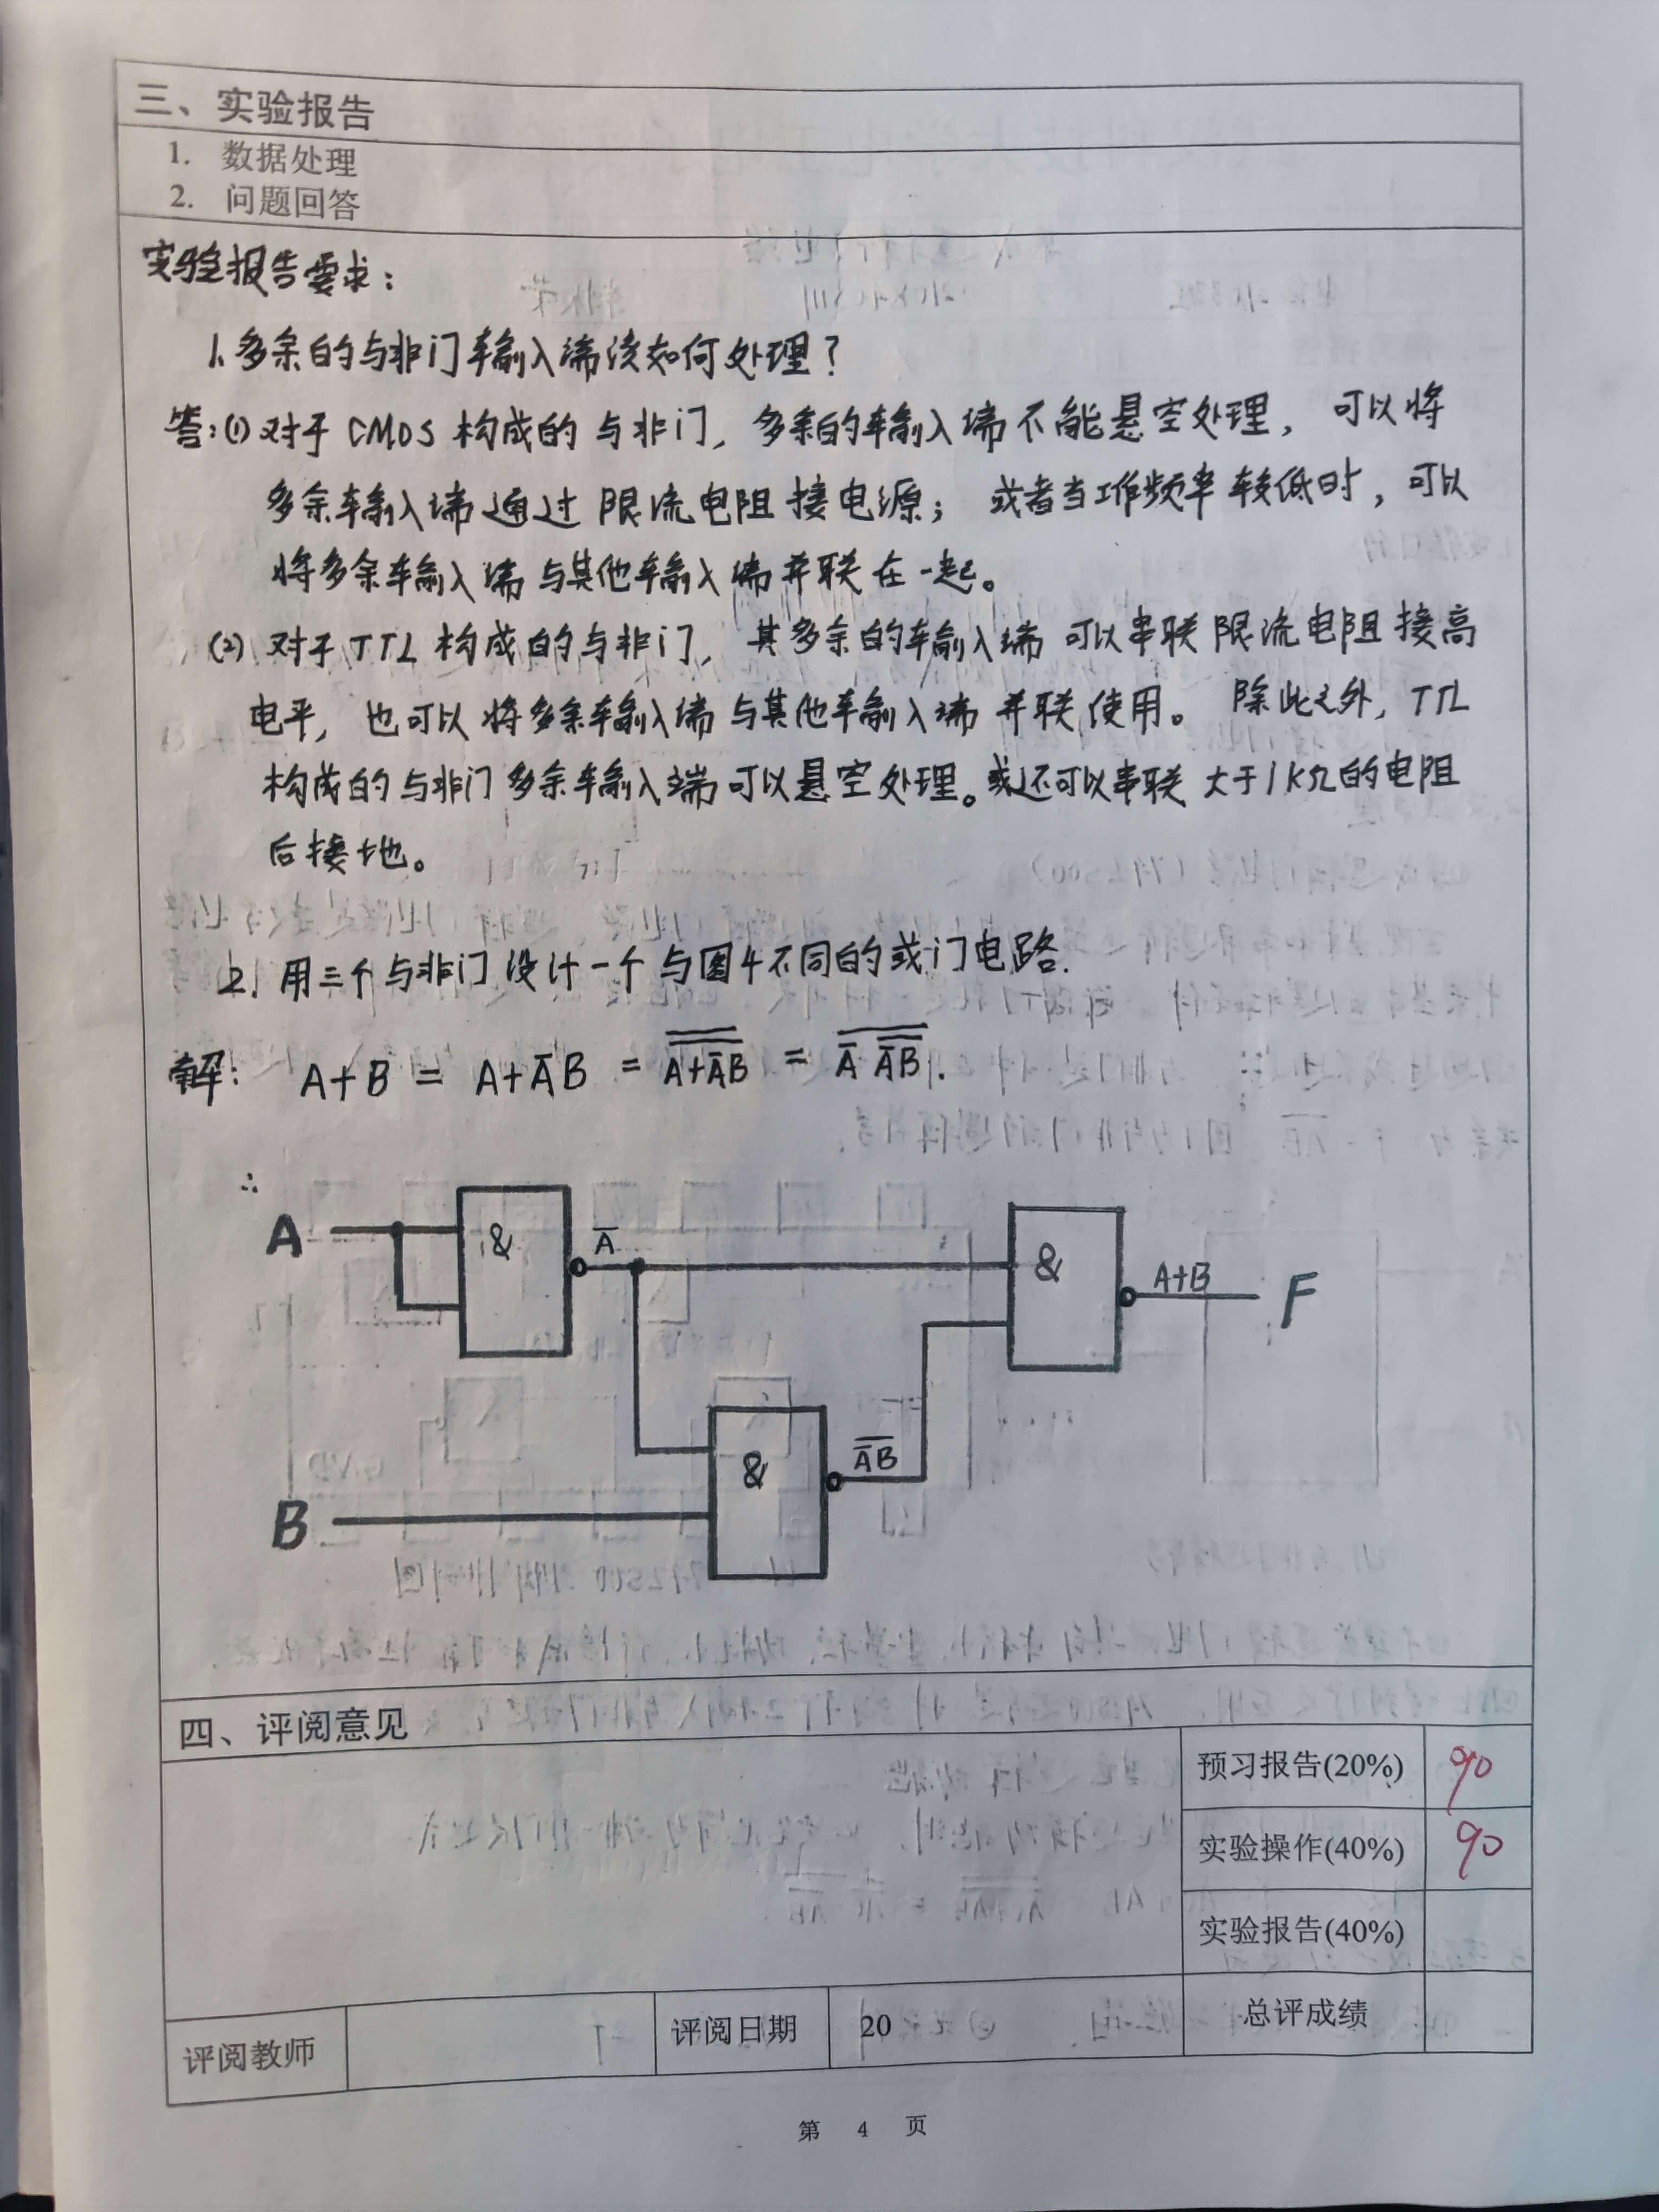 三、实验报告
1. 数据处理
2. 问题回答
实验报告要求：
1. 多余的与非门输入端该如何处理？
答：(1) 对于 CMOS 构成的与非门，多余的输入端不能悬空处理，可以将
多余输入端通过限流电阻接电源；或者当工作频率较低时，可以
将多余输入端与其他输入端并联在一起。
(2) 对于 TTL 构成的与非门，其多余的输入端可以串联限流电阻接高
电平，也可以将多余输入端与其他输入端并联使用。除此之外，TTL
构成的与非门多余输入端可以悬空处理。或还可以串联大于1KΩ的电阻
后接地。
2. 用三个与非门设计一个与图4不同的或门电路.
解： A+B = A+A̅B = A̿+̿A̿̅B̿ = \overline{\overline{A} \overline{\overline{A}B}}.
∴
A & A̅ & A+B F
B & \overline{\overline{A}B}
四、评阅意见
预习报告(20%) 90
实验操作(40%) 90
实验报告(40%)
评阅教师 评阅日期 20 总评成绩
第 4 页